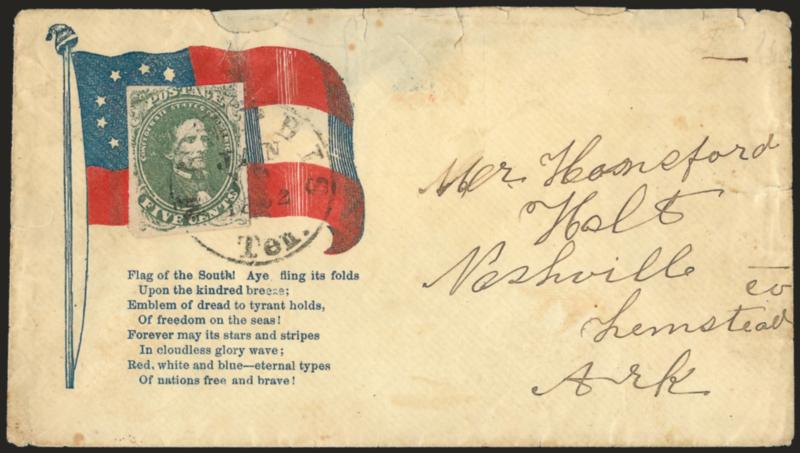 POSTAGE
CONFEDERATE STATES OF AMERICA
FIVE CENTS
JAN
Ten.
Flag of the South! Aye fling its folds
Upon the kindred breeze;
Emblem of dread to tyrant holds,
Of freedom on the seas!
Forever may its stars and stripes
In cloudless glory wave;
Red, white and blue—eternal types
Of nations free and brave!
Mr. Hansford
Holt
Nashville
Co
Ark